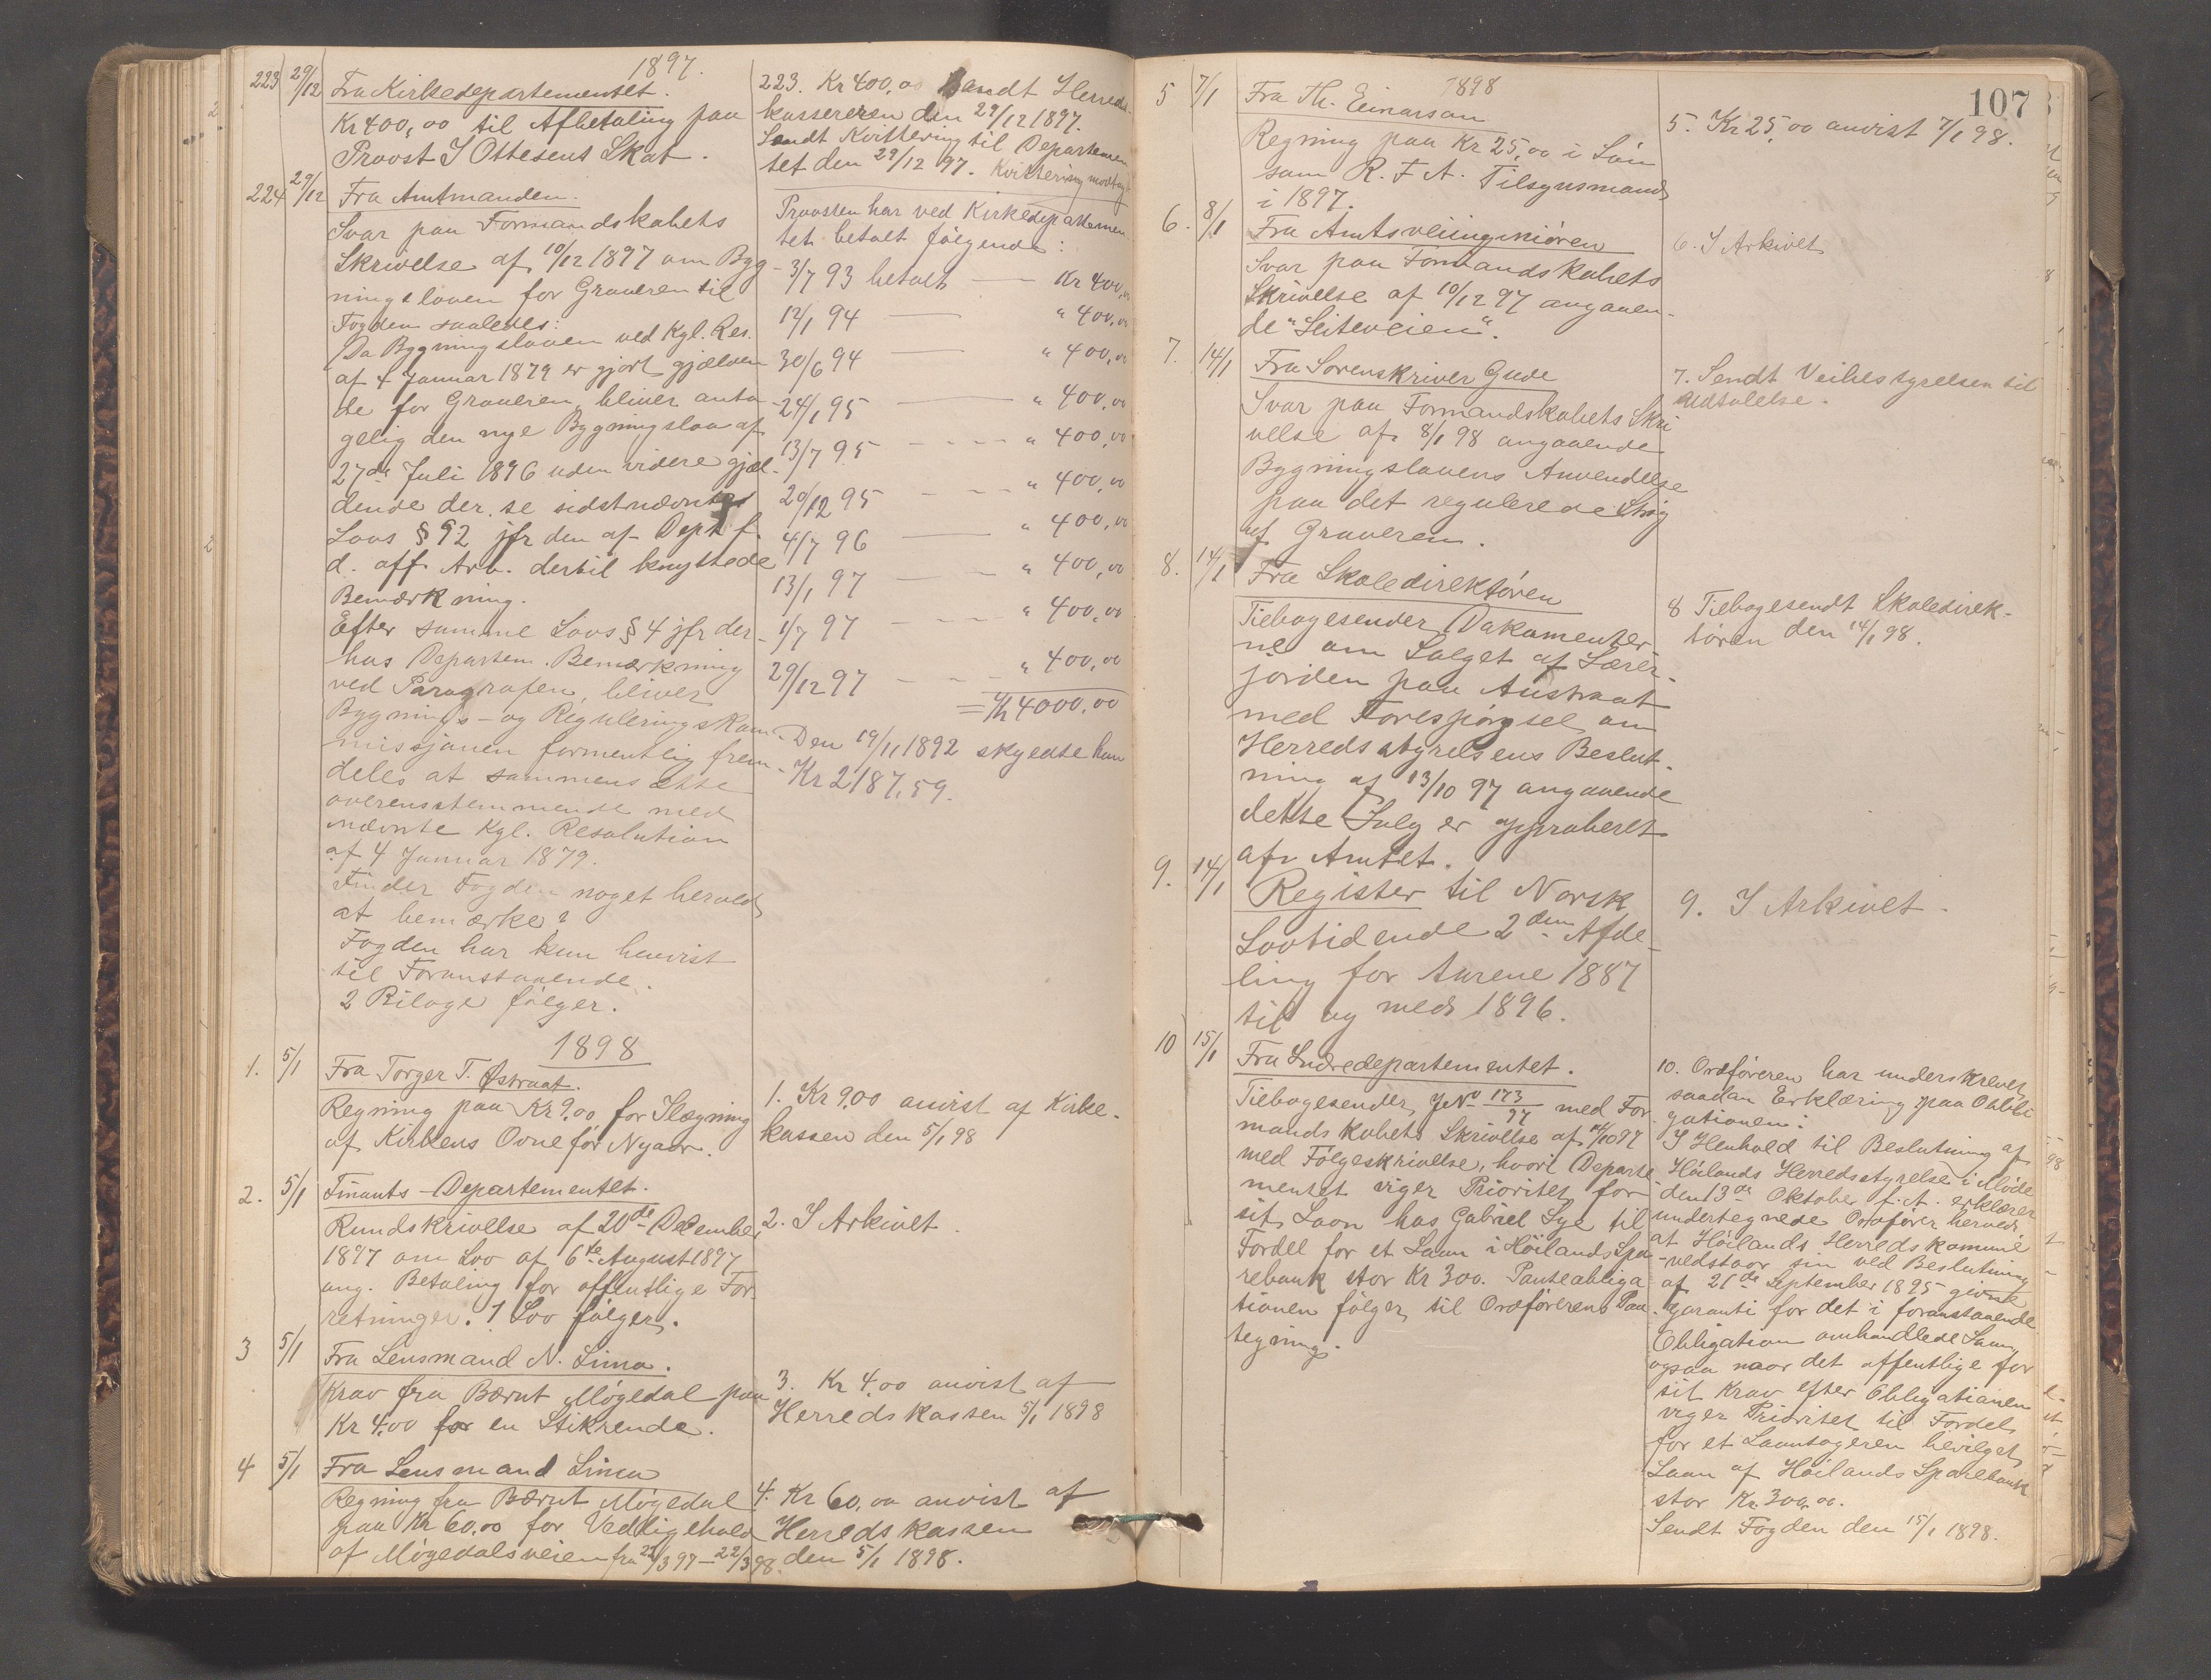 1897.
223 29/12 Fra Kirkedepartementet.
Kr 400,00 til Afbetaling paa
Provst J Ottesens Skat.
223. Kr 400,00 Sandt Herreds-
kassereren den 29/12 1897.
Sendt Kvittering til Departemen
tet den 29/12 97. Kvittering modtagt
Provsten har ved Kirkedepartemen
tet betalt følgende:
3/7 93 betalt — Kr 400,00
12/1 94 — " 400,00
30/6 94 — " 400,00
24/1 95 — " 400,00
13/7 95 - - - - " 400,00
20/12 95 - - - " 400,00
4/7 96 — " 400,00
13/1 97 - - - " 400,00
1/7 97 - - - " 400,00
29/12 97 - - - " 400,00
= Kr 4000,00
Den 19/11 1892 skyldte han
Kr 2187,59.
224 29/12 Fra Amtmanden.
Svar paa Formandskabets
Skrivelse af 10/12 1897 om Byg-
ningsloven for Graveren til
Fogden saaledes:
Da Bygningsloven ved Kgl. Res.
af 4 Januar 1879 er gjort gjælden
de for Graveren, bliver anta-
gelig den nye Bygningslov af
27de Juli 1896 uden videre gjæl-
dende der. se sidstnævnte
Lovs § 92 jfr den af Dept f.
d. off. Arb. dertil knyttede
Bemærkning.
Efter samme Lovs § 4 jfr der-
hos Departem. Bemærkning
ved Paragrafen, bliver
Bygnings- og Reguleringskom-
missjonen formentlig frem-
deles at sammensætte
overensstemmende med
nævnte Kgl. Resolution
af 4 Januar 1879.
Finder Fogden noget herved
at bemærke?
Fogden har kun henvist
til Foranstaaende.
2 Bilage følger.
1898
1. 5/1 Fra Torger T. Østraat.
Regning paa Kr 9,00 for Ilægning
af Kirkens Ovne før Nyaar.
1. Kr 9,00 anvist af Kirke-
kassen den 5/1 98
2. 5/1 Finants-Departementet.
Rundskrivelse af 20de December
1897 om Lov af 6te August 1897
ang. Betaling for offentlige For-
retninger. 1 Lov følger.
2. I Arkivet.
3 5/1 Fra Lensmand N. Lima.
Krav fra Bærnt Møgedal paa
Kr 4,00 for en Stikrende.
3. Kr 4,00 anvist af
Herredskassen 5/1 1898
4 5/1 Fra Lensmand Lima
Regning fra Bærnt Møgedal
paa Kr 60,00 for Vedligehold
af Møgedalsveien fra 22/3 97 - 22/3 98.
4. Kr 60,00 anvist af
Herredskassen
den 5/1 1898.
107
1898
5 7/1 Fra Th. Einarson
Regning paa Kr 25,00 i Løn
som R. F. A. Tilsynsmand
i 1897.
5. Kr 25,00 anvist 7/1 98.
6. 8/1 Fra Amtsveiingeniøren
Svar paa Formandskabets
Skrivelse af 10/12 97 angaaen-
de "Leiteveien".
6. I Arkivet
7. 14/1 Fra Sorenskriver Gude
Svar paa Formandskabets Skri
velse af 8/1 98 angaaende
Bygningslovens Anvendelse
paa det regulerede Strøg
af Graveren.
7. Sendt Veibestyrelsen til
Udtalelse.
8. 14/1 Fra Skoledirektøren
Tilbagesender Dokumenter
ne om Salget af Lærer-
jorden paa Austraat
med Forespørgsel om
Herredsstyrelsens Beslut-
ning af 13/10 97 angaaende
dette Salg er approberet
af Amtet.
8 Tilbagesendt Skoledirek-
tøren den 14/1 98.
9. 14/1 Register til Norsk
Lovtidende 2den Afde-
ling for Aarene 1887
til og med 1896.
9. I Arkivet.
10 15/1 Fra Indredepartementet.
Tilbagesender JNo 173/97 med For-
mandskabets Skrivelse af 14/10 97
med Følgeskrivelse, hvori Departe
mentet viger Prioritet for
sit Laan hos Gabriel Lye til
Fordel for et Laan i Høilands Spa-
rebank stor Kr 300. Panteobliga
tionen følger til Ordførerens Paa-
tegning.
10. Ordføreren har underskrevet
saadan Erklæring paa Obbli
gationen:
I Henhold til Beslutning af
Høilands Herredsstyrelse i Møde
den 13de Oktober f. A. erklærer
undertegnede Ordfører herved,
at Høilands Herredskommune
vedstaar sin ved Beslutning
af 21de September 1895 givne
Garanti for det i foranstaaende
Obligation omhandlede Laan,
ogsaa naar det offentlige for
sit Krav efter Obligationen
viger Prioritet til Fordel
for et Laantageren bevilget
Laan af Høilands Sparebank
stor Kr 300,00.
Sendt Fogden den 15/1 1898.